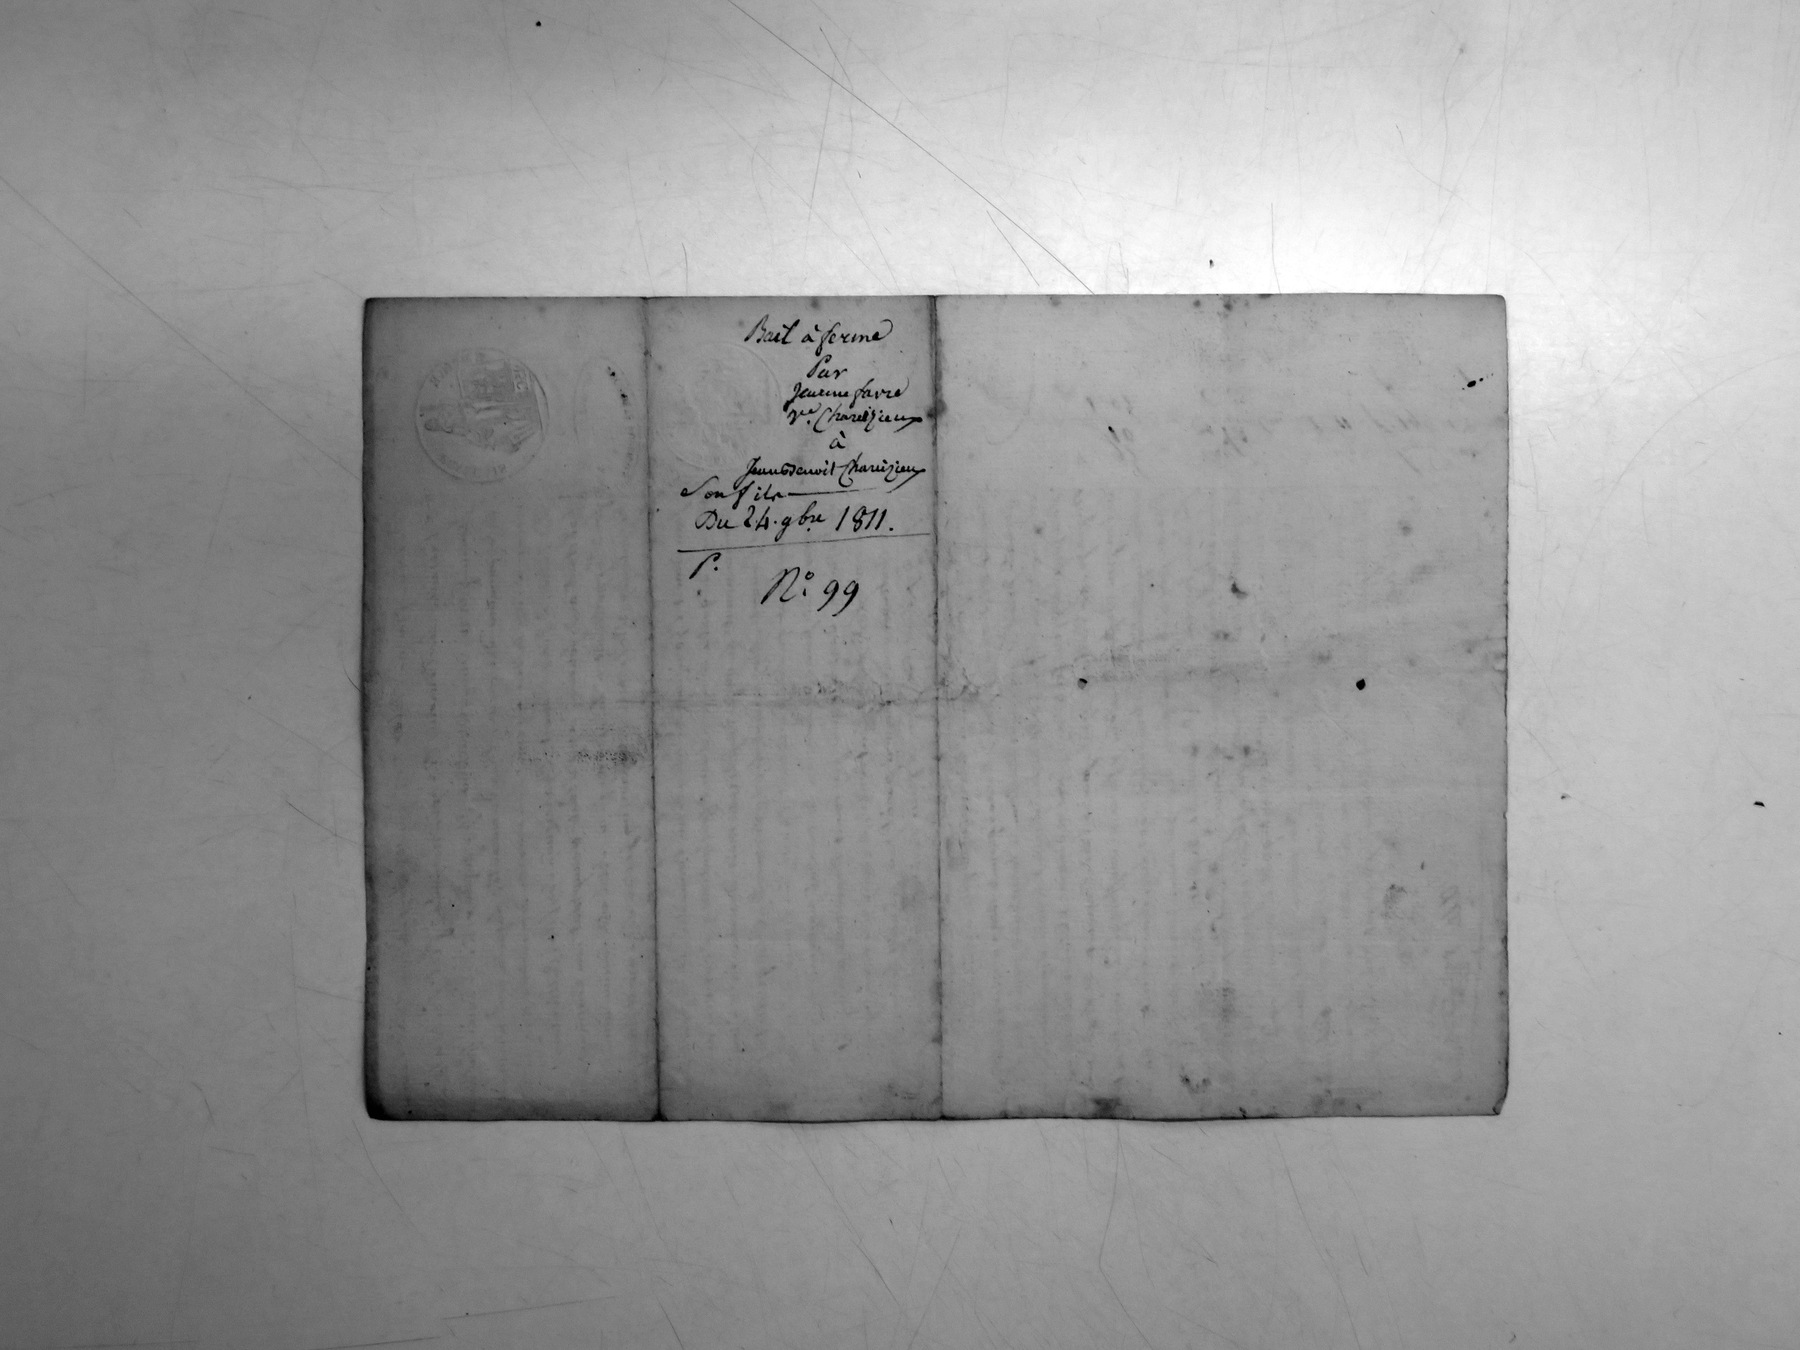 Bail à ferme
Par
Jeanne favre
Ve. Charézieux
à
Jean Benoit Charézieux
Son fils
Du 24. 9bre 1811.
P.
N.º 99